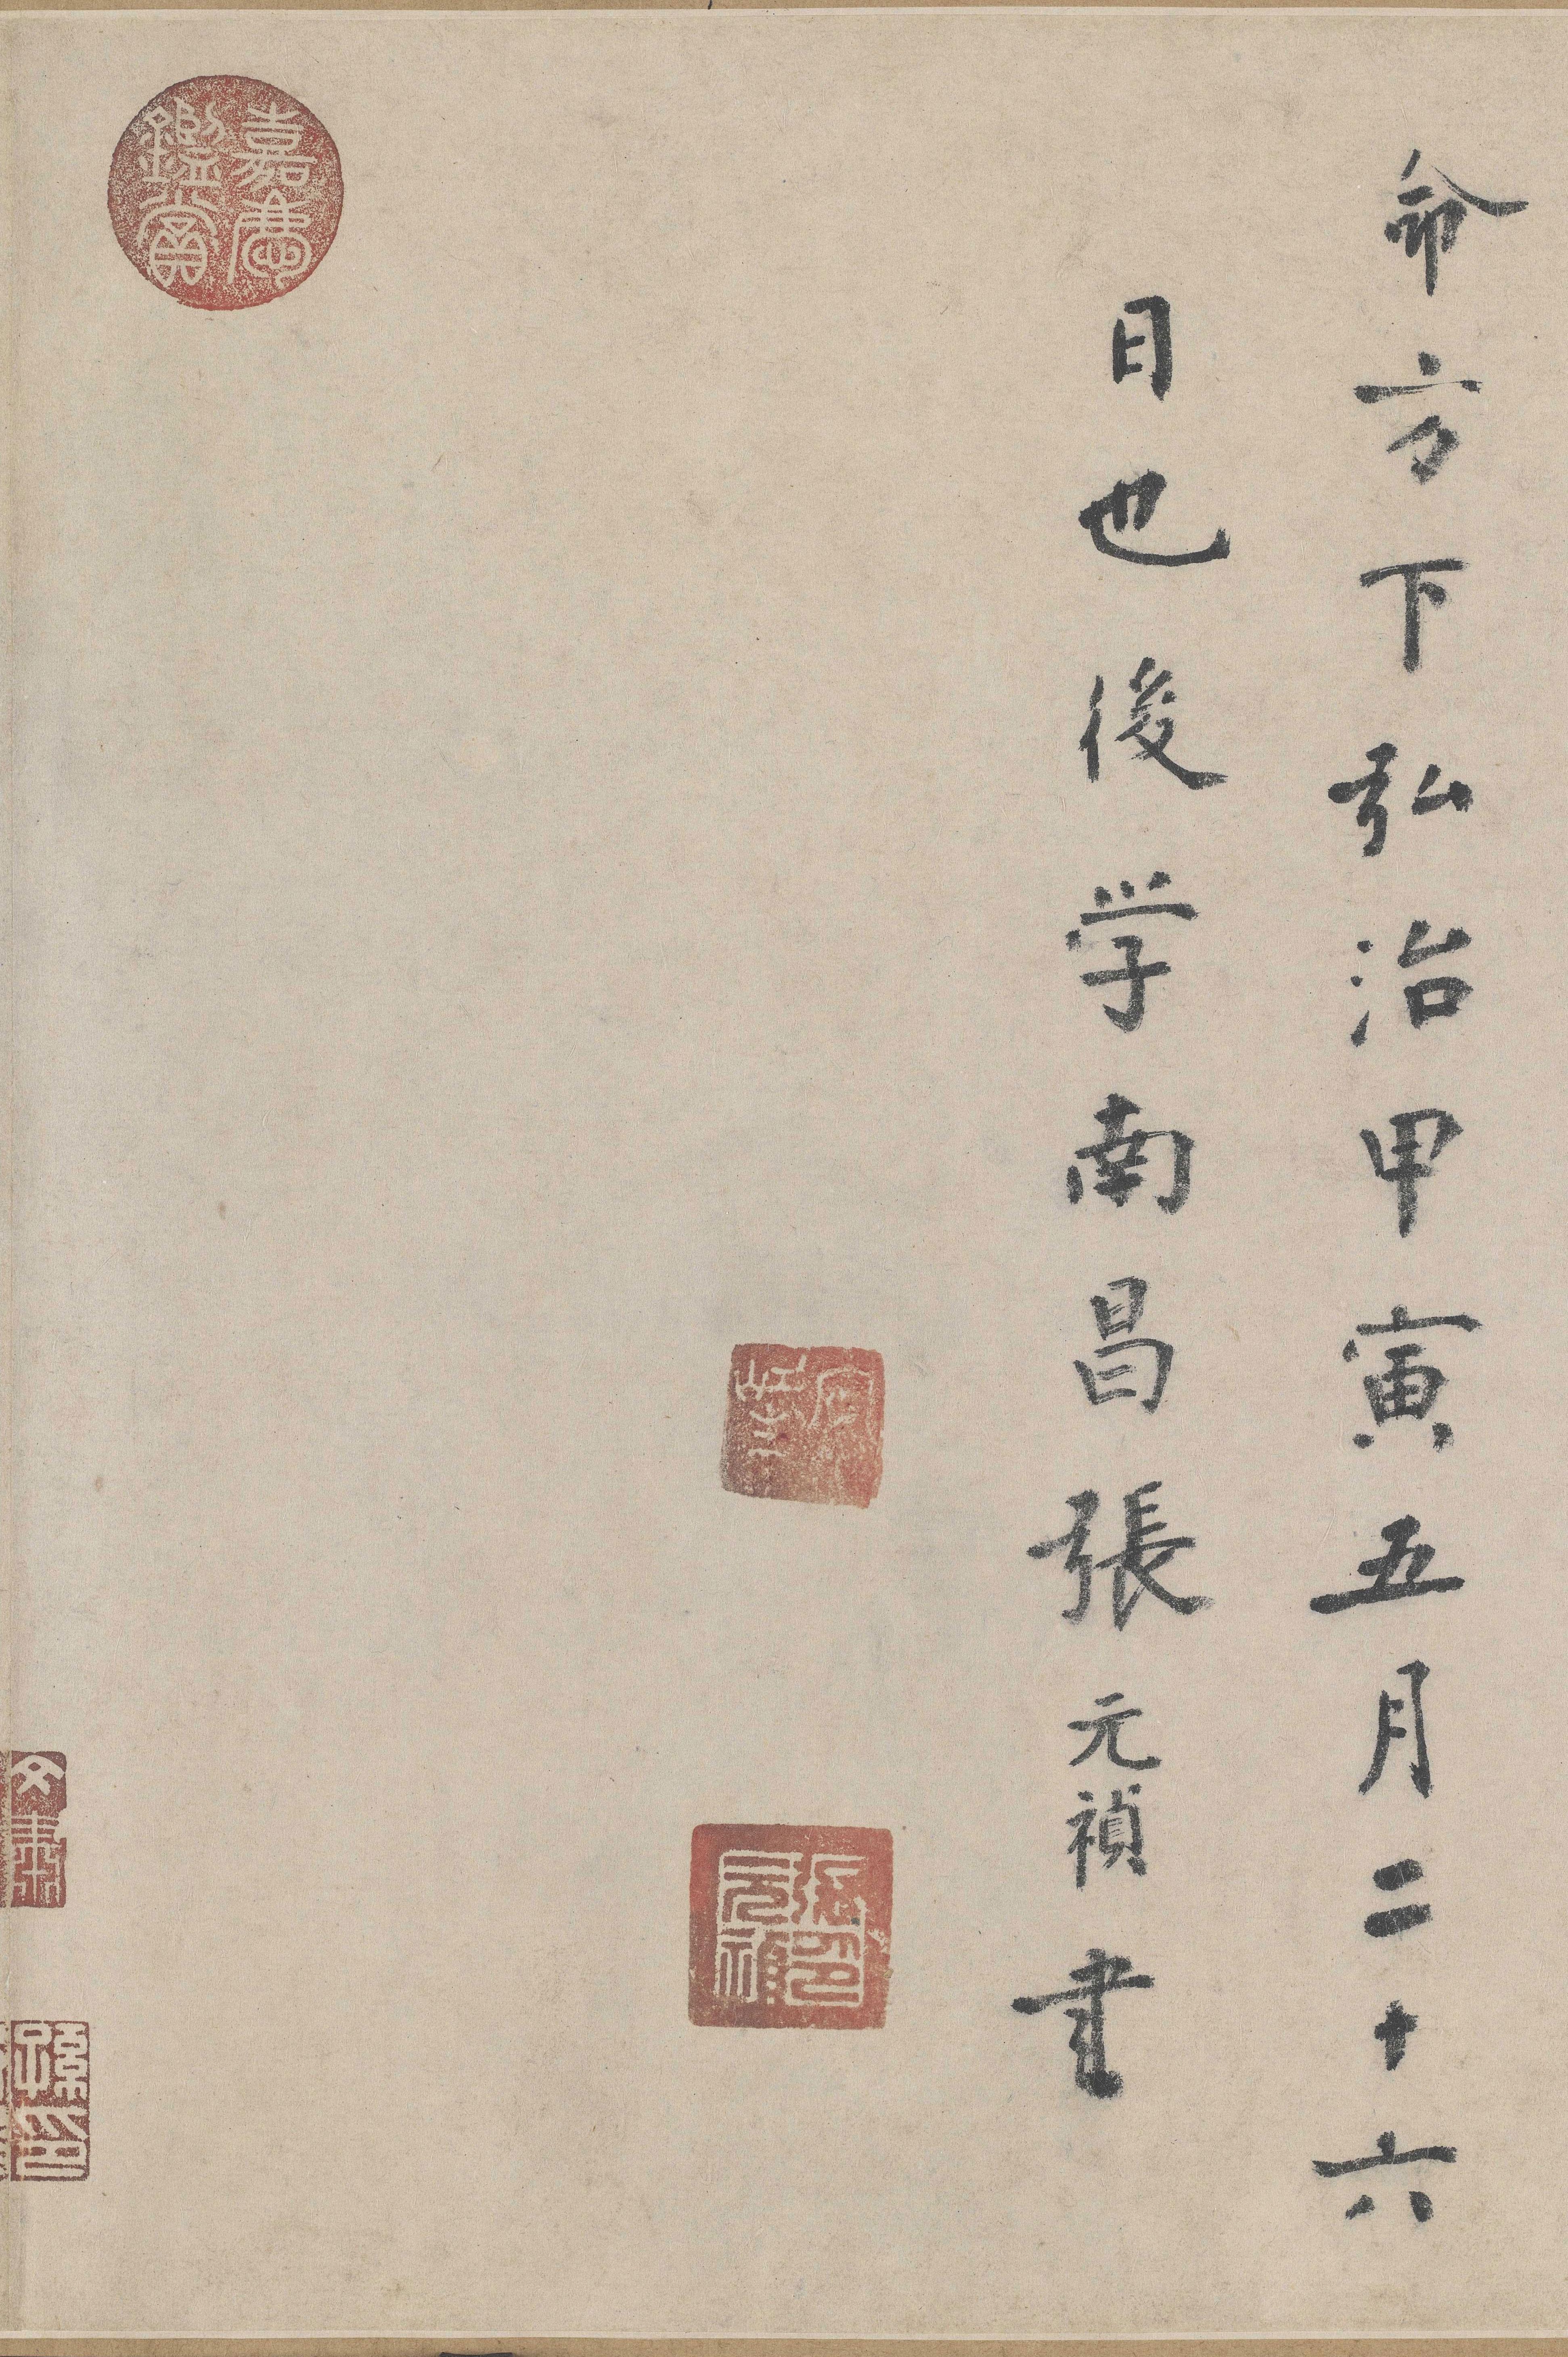 命方下弘治甲寅五月二十六
日也後学南昌張元禎書
張元禎印
嘉慶鑑賞